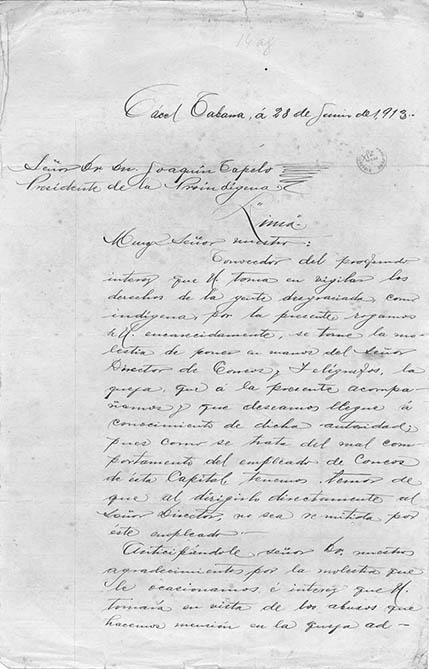 Cabana, á 28 de Junio de 1913.
Señor Dr. Dn. Joaquín Capelo
Presidente de la Proindígena
Lima.
Muy Señor nuestro:
Conocedor del profundo
interez que U. toma en vigilar los
derechos de la gente desgraciada como
indígena, por la presente rogamos
á U. encarecidamente, se tome la mo-
lestia de poner en manos del Señor
Director de Correos y Telégrafos, la
queja, que á la presente acompa-
ñamos, y que deseamos llegue á
conocimiento de dicha autoridad,
pues como se trata del mal com-
portamento del empleado de Correos
de ésta Capital, tenemos temor de
que al dirigirlo directamente al
Señor Director, no sea remitida por
éste empleado.
Anticipándole, señor Dr. nuestro
agradecimiento por la molestia que
le ocasionamos, é interez que U.
tomaría en vista de los abusos que
hacemos mención en la queja ad-